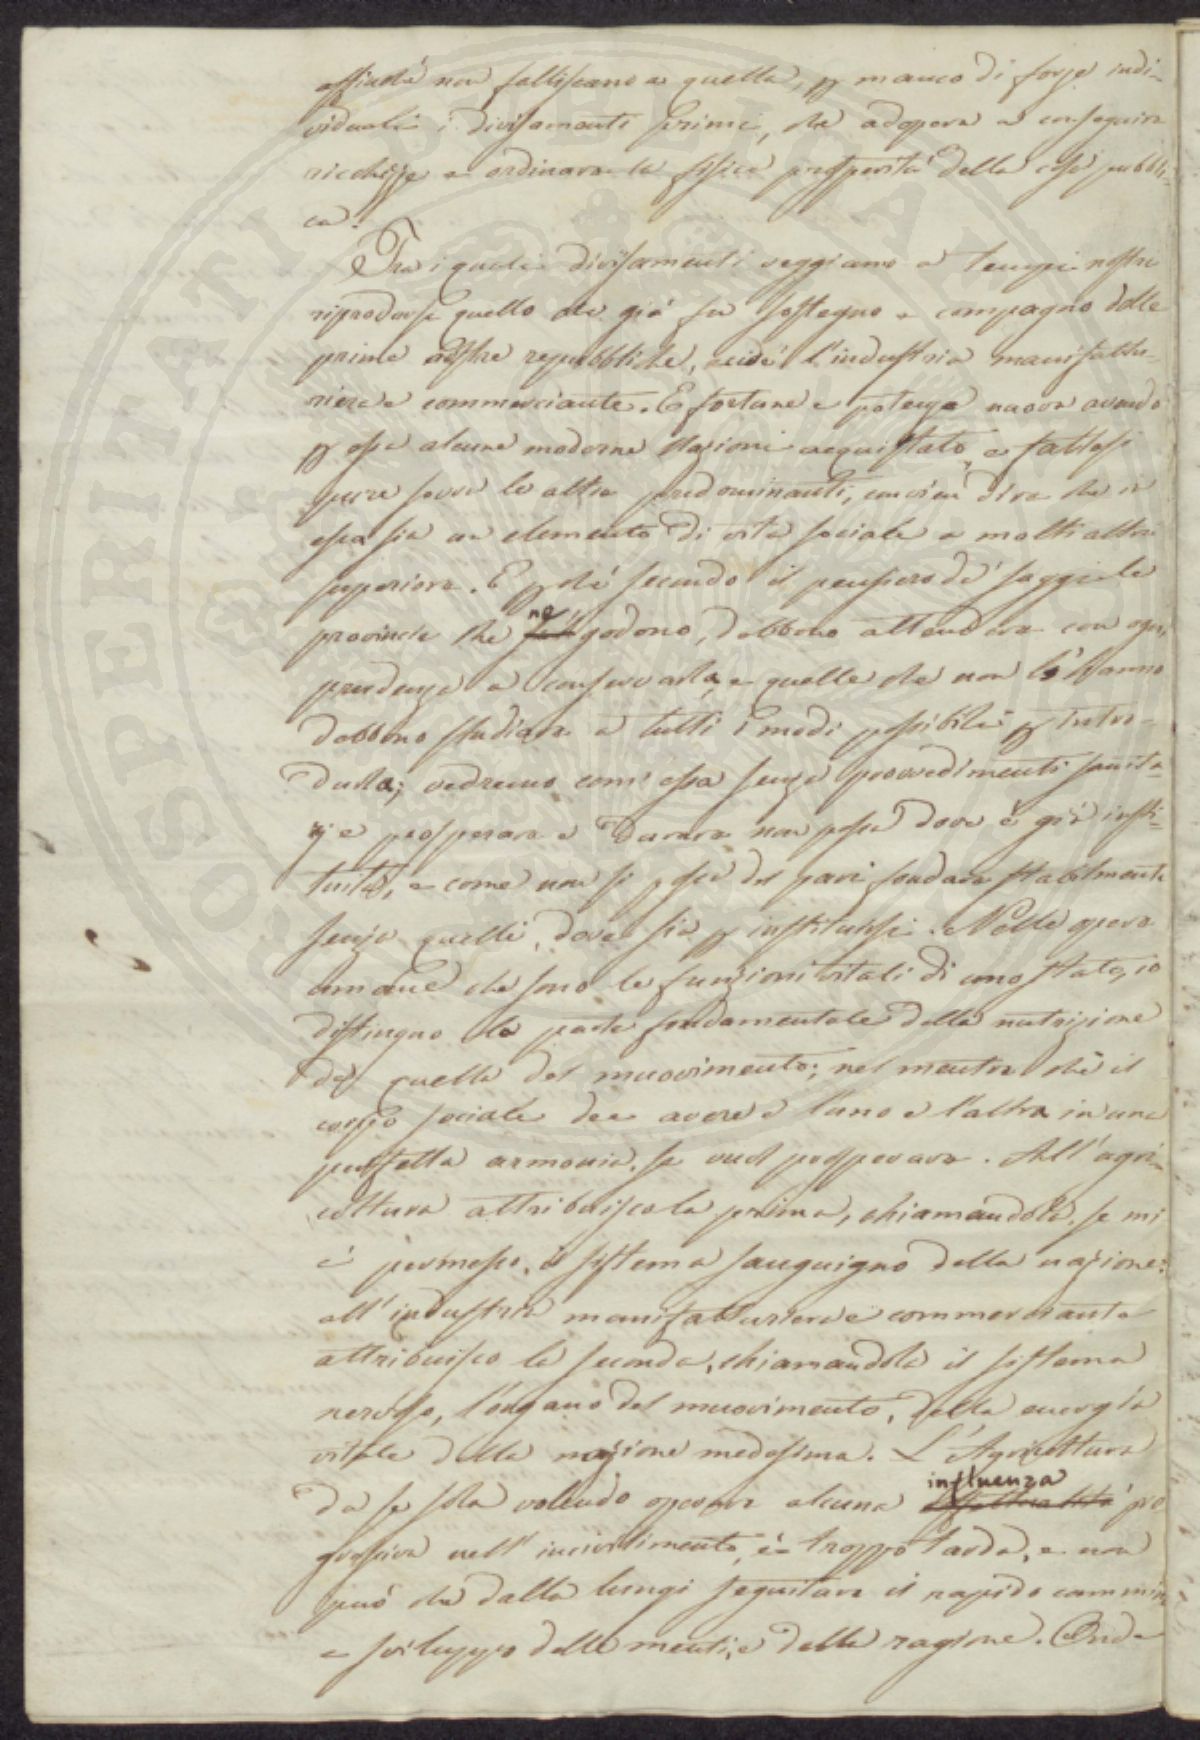 affinché non falliscano a quella, p manco di forze indi-
viduali i divisamenti primi, che adopera a conseguire
ricchezze e ordinare la fisica prosperità della cosa pubbli-
ca.
Tra i quali divisamenti veggiamo a' tempi nostri
riprodursi quello che già fu sostegno e compagno delle
prime nostre repubbliche, cioè l'industria manifattu-
riera e commerciante. E fortune e potenza nuova avendo
p essa alcune moderne nazioni acquistato, e fattesi
pure sovra le altre predominanti, convien dire che in
essa sia un elemento di vita sociale a molti altri
superiore. E p ché secondo il pensiero de' saggi le
provincie che ne godono, debbono attendere con ogni
prudenza a conservarla, e quelle che non l'hanno
debbono studiare a tutti i modi possibili p intro-
durla; vedremo com' essa senza provvedimenti sanita-
rj e prosperare e durare non possa dove è già insti-
tuita, e come non si possa del pari fondare stabilmente
senza quelli, dove sia p instituirsi. Nelle opere
umane che sono le funzioni vitali di uno stato, io
distinguo la parte fondamentale della nutrizione
da quella del muovimento; nel mentre chè il
corpo sociale dee avere e l'una e l'altra in una
perfetta armonia, se vuol prosperare. All' agri-
coltura attribuisco la prima, chiamandola, se mi
è permesso, il sistema sanguigno della nazione:
all' industria manifatturiera e commerciante
attribuisco la seconda, chiamandola il sistema
nervoso, l'organo del muovimento, della energia
vitale della nazione medesima. L'Agricoltura
da se sola volendo operare alcuna influenza pro
gressiva nell' incivilimento, è troppo tarda, e non
può che dalla lungi seguitare il rapido cammino
e sviluppo delle menti, e della ragione. Onde
SOSPERITATI PUBLICAE